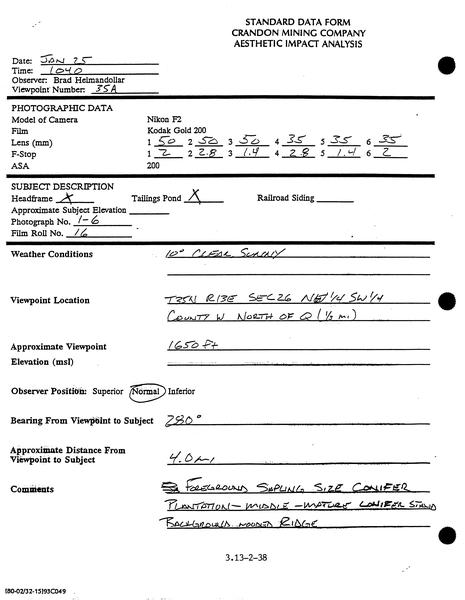 STANDARD DATA FORM
CRANDON MINING COMPANY
AESTHETIC IMPACT ANALYSIS
Date: JAN 25
Time: 1040
Observer: Brad Heimandollar
Viewpoint Number: 35A
PHOTOGRAPHIC DATA
Model of Camera Nikon F2
Film Kodak Gold 200
Lens (mm) 1 50 2 50 3 50 4 35 5 35 6 35
F-Stop 1 2 2 2.8 3 1.4 4 2.8 5 1.4 6 2
ASA 200
SUBJECT DESCRIPTION
Headframe X Tailings Pond X Railroad Siding
Approximate Subject Elevation
Photograph No. 1-6
Film Roll No. 16
Weather Conditions 10° CLEAR SUNNY
Viewpoint Location T35N R13E SEC26 NE1/4 SW1/4
COUNTY W NORTH OF Q (1/3 mi.)
Approximate Viewpoint 1650 ft
Elevation (msl)
Observer Position: Superior Normal Inferior
Bearing From Viewpoint to Subject 280°
Approximate Distance From
Viewpoint to Subject 4.0 mi
Comments FOREGROUND SAPLING SIZE CONIFER
PLANTATION - MIDDLE - MATURE CONIFER STAND
BACKGROUND WOODED RIDGE
3.13-2-38
[80-02/32-15]93C049